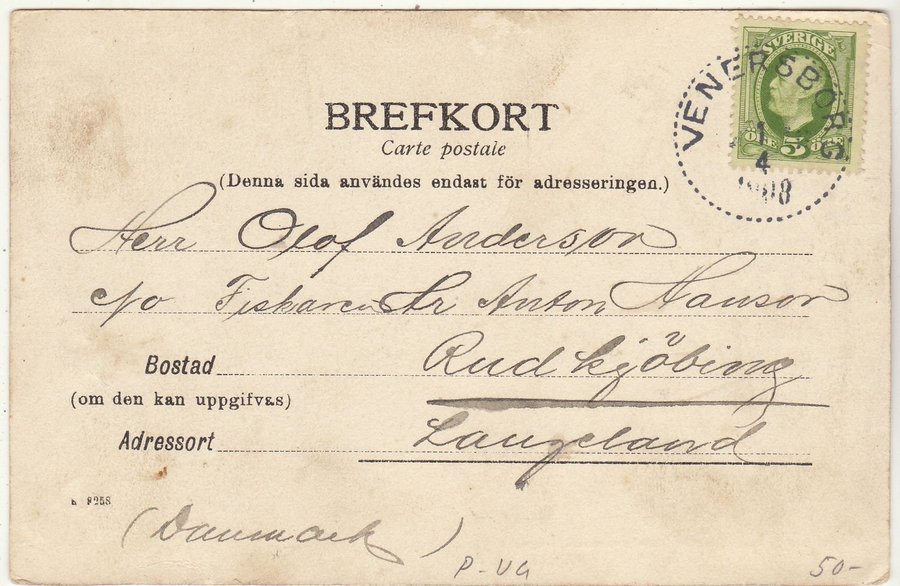 BREFKORT
Carte postale
(Denna sida användes endast för adresseringen.)
SVERIGE
ÖRE 5 ÖRE
VENERSBORG
1
4
1908
Herr Olof Anderson
c/o Fiskaren Hr Anton Hanson
Bostad Rudkjöbing
(om den kan uppgifvas)
Adressort Langeland
9258
(Danmark)
P-VG 50-